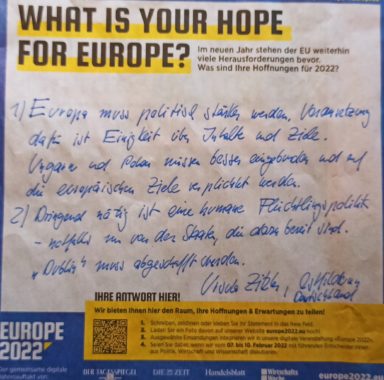 WHAT IS YOUR HOPE
FOR EUROPE?
Im neuen Jahr stehen der EU weiterhin
viele Herausforderungen bevor.
Was sind Ihre Hoffnungen für 2022?
1) Europa muss politisch stärker werden. Voraussetzung
dafür ist Einigkeit über Inhalte und Ziele.
Ungarn und Polen müssen besser eingebunden und auf
die europäischen Ziele verpflichtet werden.
2) Dringend nötig ist eine humane Flüchtlingspolitik
- notfalls nur von den Staaten, die dazu bereit sind.
"Dublin" muss abgeschafft werden.
Deutschland
IHRE ANTWORT HIER!
Wir bieten Ihnen hier den Raum, Ihre Hoffnungen & Erwartungen zu teilen!
1. Schreiben, zeichnen oder kleben Sie Ihr Statement in das freie Feld.
2. Laden Sie ein Foto davon auf unserer Website europe2022.eu hoch!
3. Ausgewählte Einsendungen integrieren wir in unsere digitale Veranstaltung «Europe 2022».
4. Seien Sie dabei, wenn wir vom 07. bis 10. Februar 2022 mit führenden Entscheider:innen
aus Politik, Wirtschaft und Wissenschaft diskutieren.
EUROPE
2022
Der gemeinsame digitale
DER TAGESSPIEGEL
DIE ZEIT
Handelsblatt
europe2022.eu